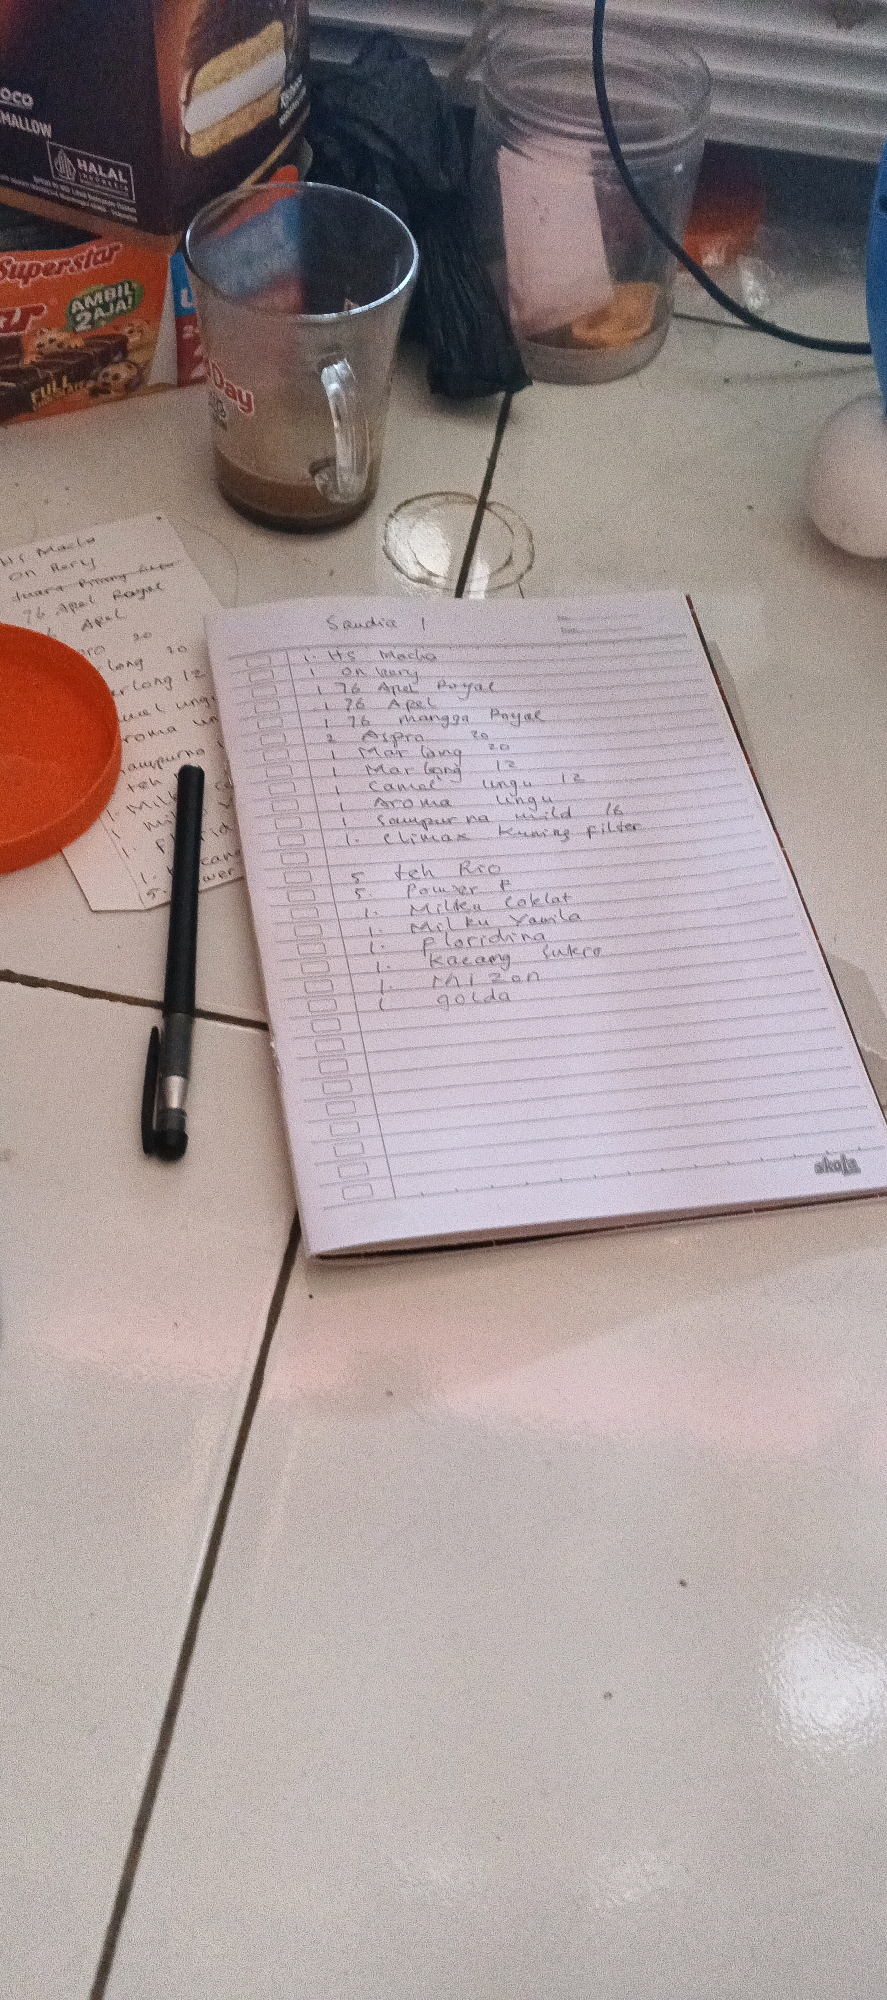 OCO
MALLOW
HALAL
INDONESIA
Superstar
AMBIL
2 AJA!
FULL
Day
HS Macho
on Bery
76 Apel Royal
Apel
20
long 20
long 12
ungu
roma un
sampurna
teh
1. Milk
1.
1.
1.
5.
Saudia 1
1. HS Macho
1 on bery
1 76 Apel Royal
1 76 Apel
1 76 mangga Royal
2 Aspro 20
1 Mar long 20
1 Mar long 12
1 Camel ungu 12
1 Aroma ungu
1 Sampurna mild 16
1. Climax Kuning filter
5 teh Rio
5. Power F
1. Milku Coklat
1. Milku Vanila
1. Floridina
1. Kacang Sukro
1. mizon
1 golda
skola